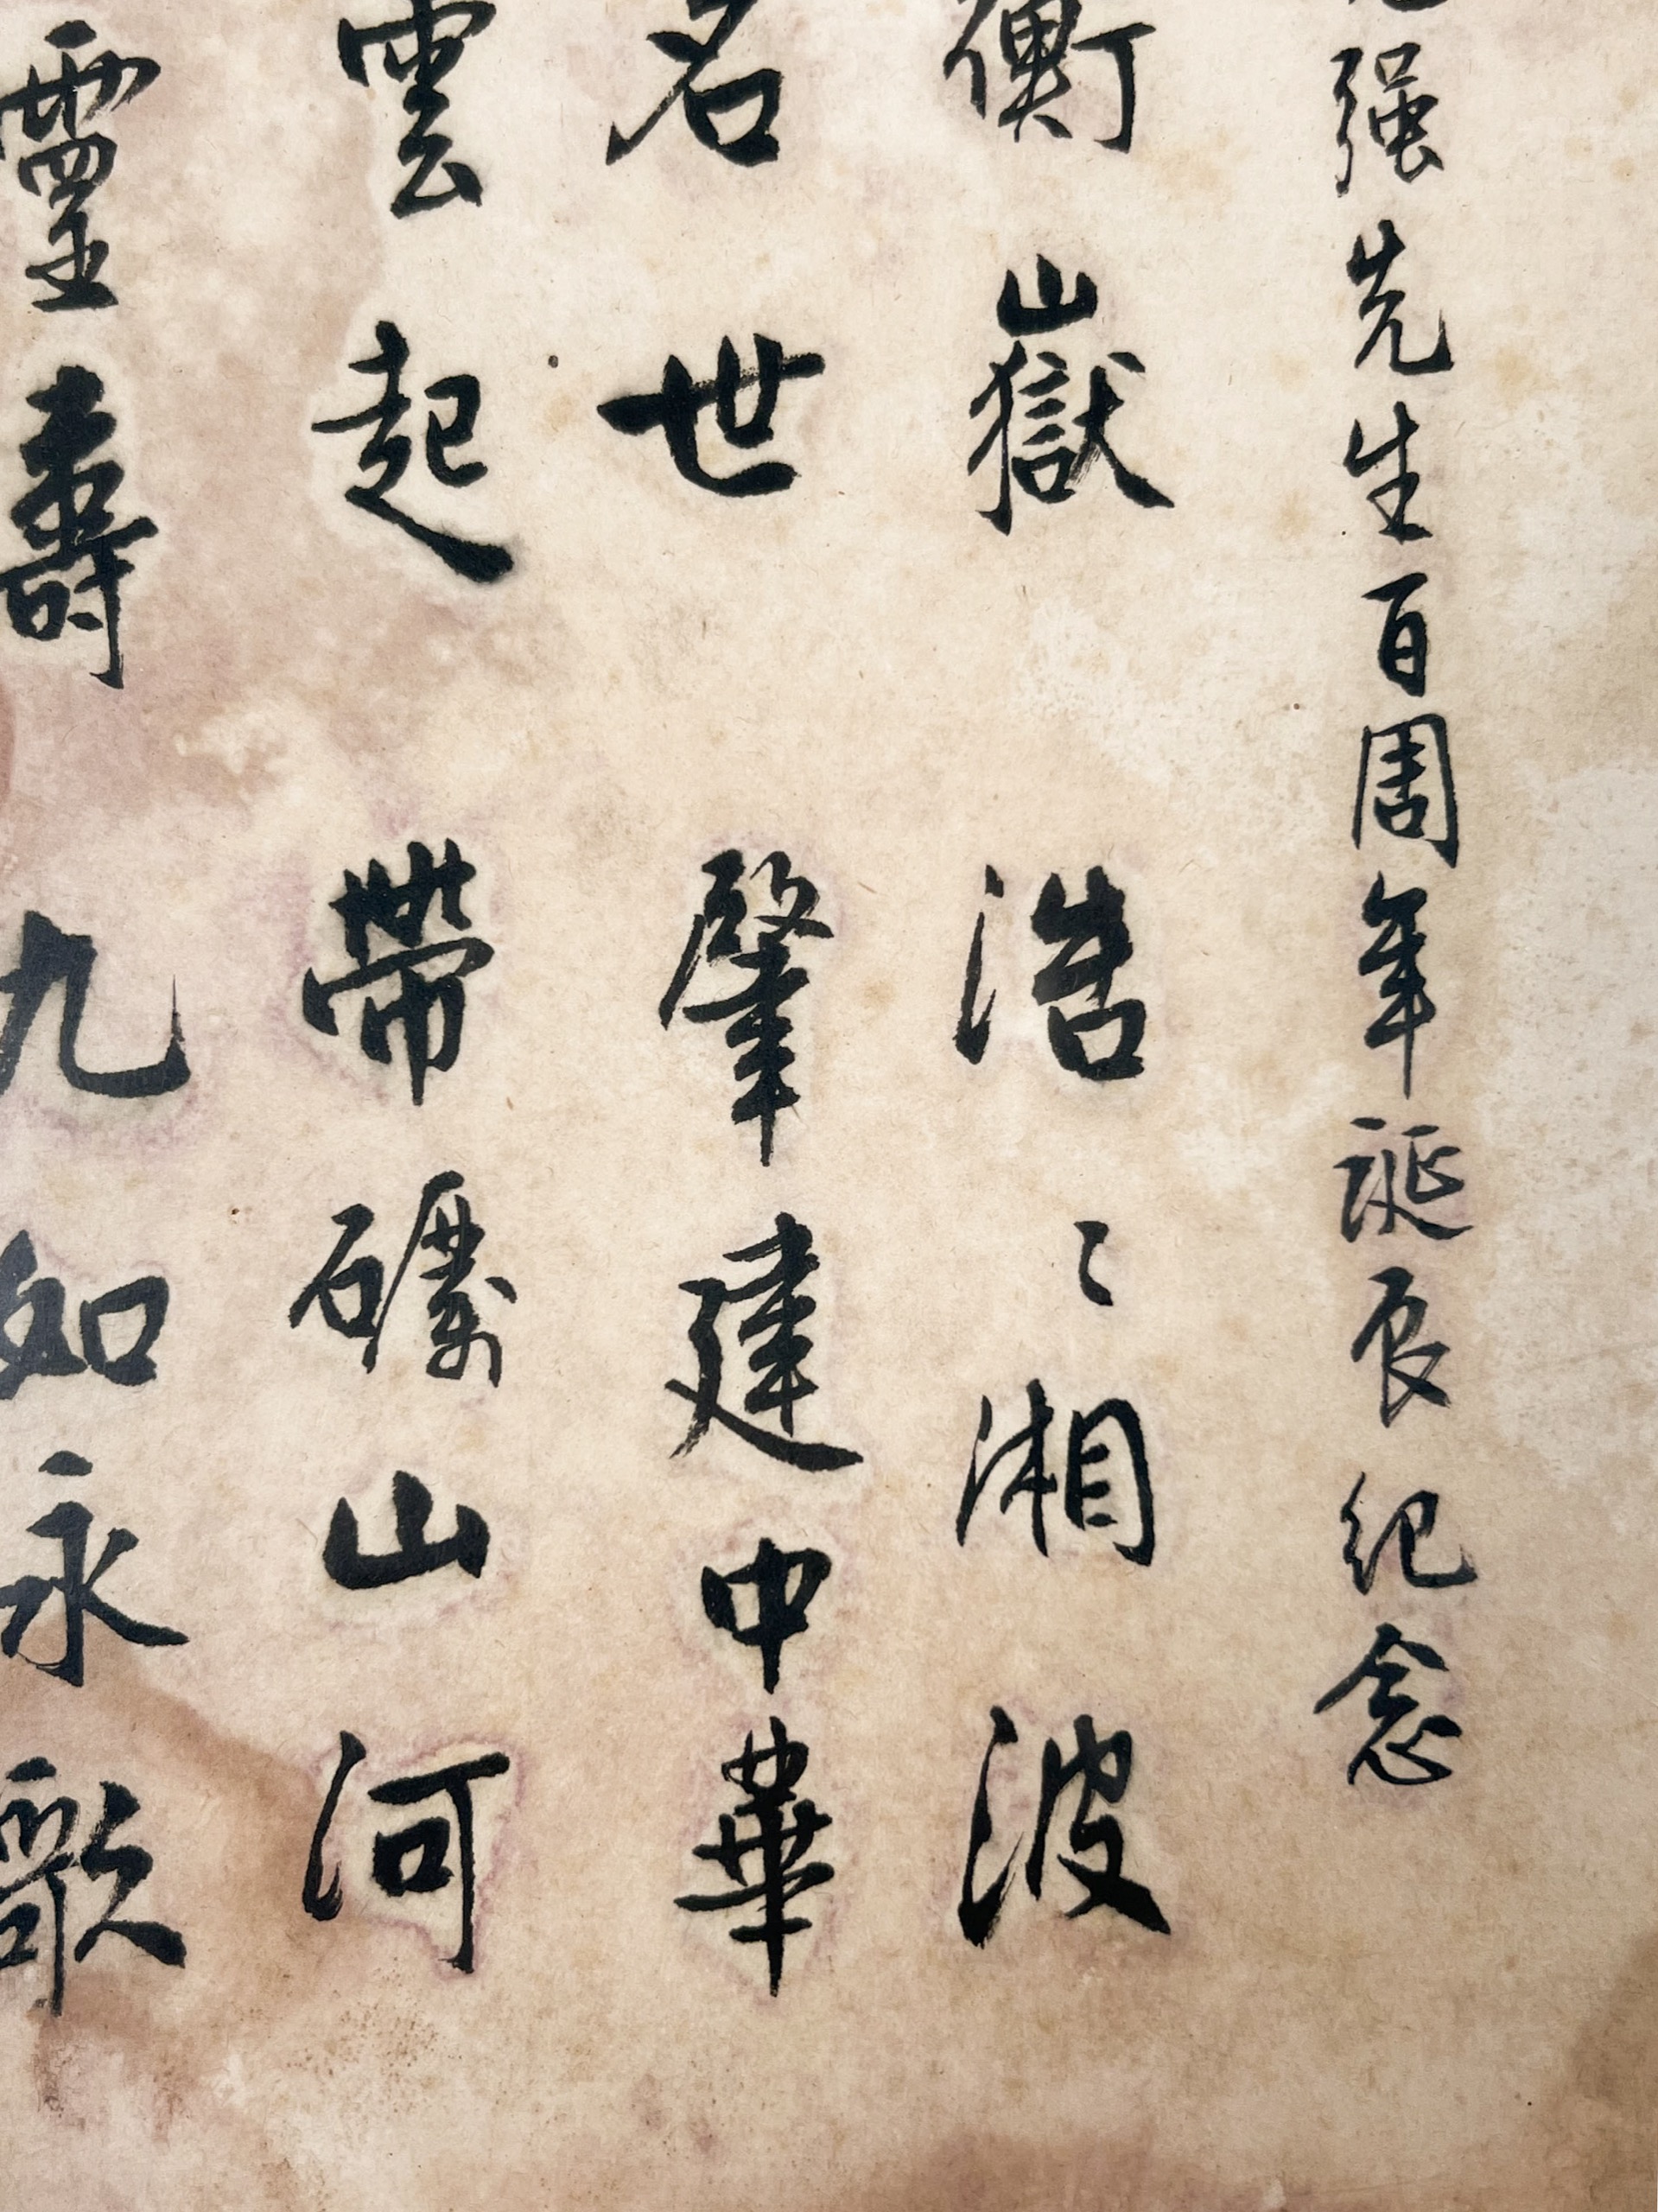 强先生百周年诞辰纪念
衡嶽浩〻湘波
名世肇建中華
雲起帶礪山河
靈壽九如永歌